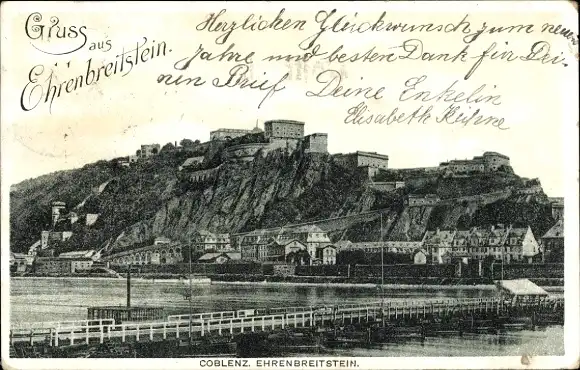 Gruss
aus
Ehrenbreitstein.
Herzlichen Glückwunsch zum neuen
Jahre und besten Dank für Dei-
nen Brief Deine Enkelin
Elisabeth Kühne
COBLENZ. EHRENBREITSTEIN.